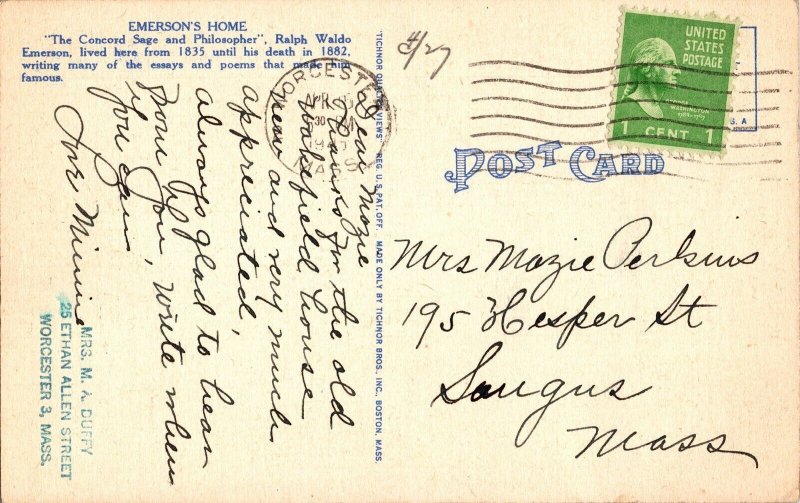 EMERSON'S HOME
"The Concord Sage and Philosopher", Ralph Waldo
Emerson, lived here from 1835 until his death in 1882,
writing many of the essays and poems that made him
famous.
Dear Mozie
Thanks for the old
Wakefield house
new and very much
appreciated,
always glad to hear
from you, write when
if
you can
Love Minnie
MRS. M. A. DUFFY
25 ETHAN ALLEN STREET
WORCESTER 3, MASS.
"TICHNOR QUALITY VIEWS" REG. U. S. PAT. OFF. MADE ONLY BY TICHNOR BROS., INC., BOSTON, MASS.
4/27
WORCESTER
APR
30 PM
19
MASS
UNITED
STATES
POSTAGE
WASHINGTON
1 CENT 1
S. A
POST CARD
Mrs Mozie Perkins
195 Hesper St
Saugus
Mass